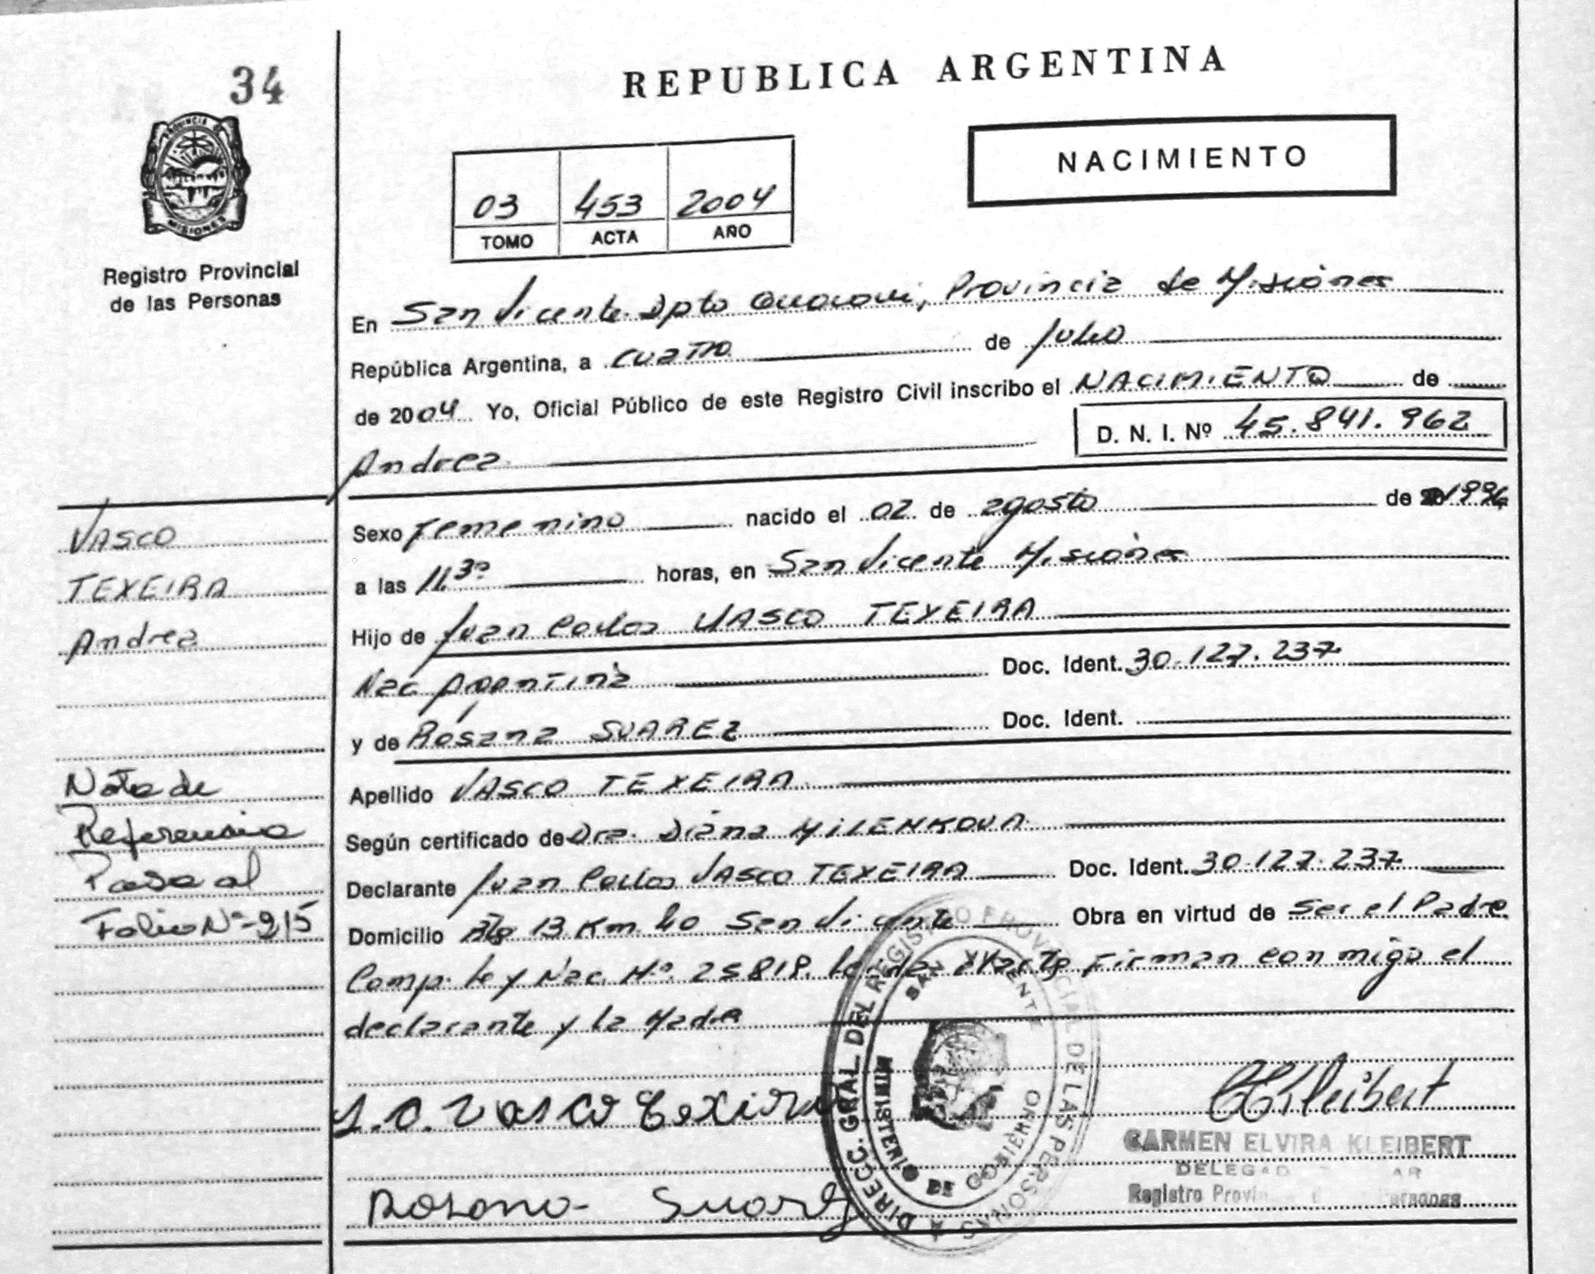 34
REPUBLICA ARGENTINA
PROVINCIA DE
MISIONES
Registro Provincial
de las Personas
NACIMIENTO
03 453 2004
TOMO ACTA AÑO
En San Vicente Dpto Guarani, Provincia de Misiones
República Argentina, a cuatro de Julio
de 2004 Yo, Oficial Público de este Registro Civil inscribo el NACIMIENTO de
Andrea
D. N. I. Nº 45.841.962
VASCO
TEXEIRA
Andrea
Sexo Femenino nacido el 02 de agosto de 1996
a las 11.30 horas, en San Vicente Misiones
Hijo de Juan Carlos VASCO TEXEIRA
Nac Argentina Doc. Ident. 30.127.237
y de Rosana SUAREZ Doc. Ident.
Apellido VASCO TEXEIRA
Según certificado de Dra. Diana MILENKOVA
Declarante Juan Carlos VASCO TEXEIRA Doc. Ident. 30.127.237
Domicilio Rta 13 Km 40 San Vicente Obra en virtud de Ser el Padre
Comp. Ley Nac Nº 25818. Firman conmigo el
declarante y la Madre
Nota de
Referencia
Pasa al
Folio Nº 215
J.C. Vasco Texira
Rosana Suarez
DIRECC. GRAL. DEL REGISTRO PROVINCIAL DE LAS PERSONAS
SAN VICENTE
MINISTERIO DE GOBIERNO
CKleibert
CARMEN ELVIRA KLEIBERT
Registro Personas